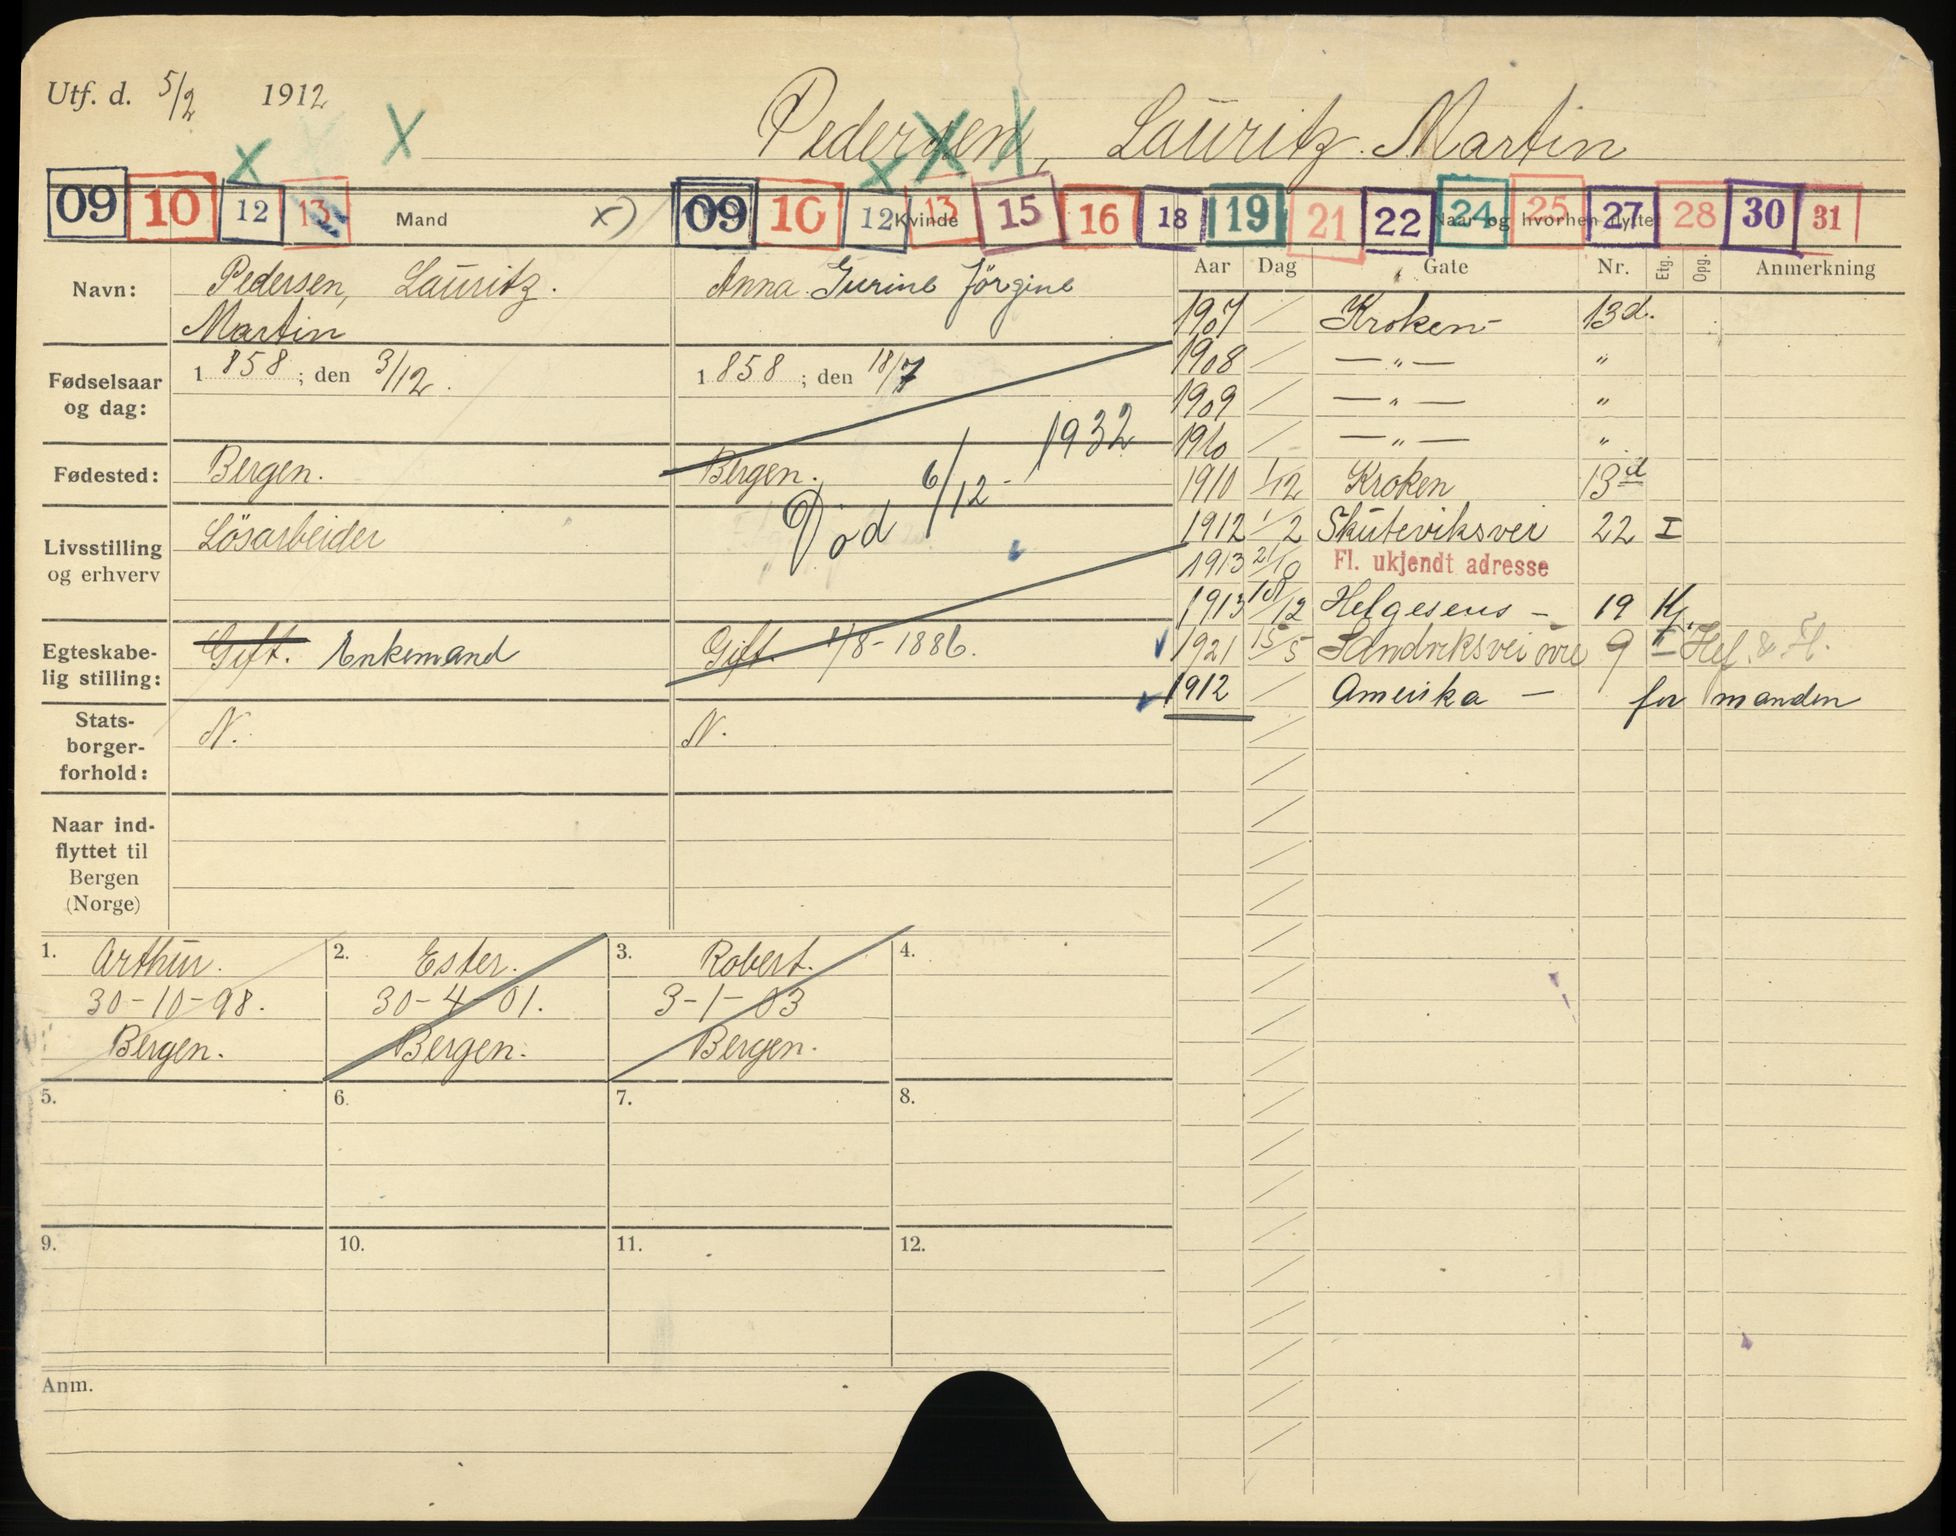 Utf. d. 5/2 1912
Pedersen, Lauritz Martin
09 10 12 13 Mand x)
09 10 12 Kvinde 13 15 16 18 19 21 22 24 25 27 28 30 31
Naar og hvorhen flyttet
Navn: Pedersen, Lauritz.
Martin
Anna Gurine Jörgine
Fødselsaar
og dag:
1 858; den 3/12.
1 858; den 18/7
Fødested: Bergen.
Bergen.
Död 6/12 - 1932
Livsstilling
og erhverv
Lösarbeider
Egteskabe-
lig stilling:
Gift. Enkemand
Gift. 1/8 - 1886.
Stats-
borger-
forhold:
N.
N.
Naar ind-
flyttet til
Bergen
(Norge)
Aar Dag Gate Nr. Etg. Opg. Anmerkning
1907 / Kroken - 13d.
1908 / — " — "
1909 / — " — "
1910 / — " — "
1910 1/12 Kroken 13d
1912 1/2 Skuteviksvei 22 I
1913 21/10 Fl. ukjendt adresse
1913 /12 Helgesens - 19 Kj.
1921 15/5 Sandviksvei övre 9 II
1912 / Amerika — for manden
1. Arthur.
30-10-98.
Bergen.
2. Ester.
30-4-01.
Bergen.
3. Robert.
3-1-03
Bergen.
4.
5.
6.
7.
8.
9.
10.
11.
12.
Anm.